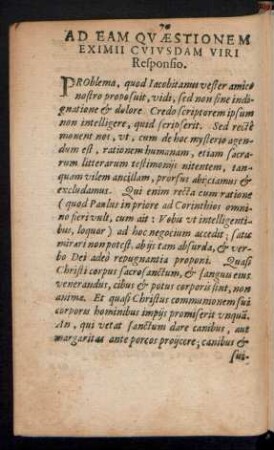 AD EAM QVÆSTIONEM
EXIMII CVIVSDAM VIRI
Responsio.
PRoblema, quod Iacobitanus vester amico
nostro proposuit, vidi, sed non sine indi-
gnatione & dolore. Credo scriptorem ipsum
non intelligere, quid scripserit. Sed rectè
monent nos, vt, cum de hoc mysterio agen-
dum est, rationem humanam, etiam sacra-
rum litterarum testimonijs nitentem, tan-
quam vilem ancillam, prorsus abijciamus &
excludamus. Qui enim recta cum ratione
(quod Paulus in priore ad Corinthios omni-
no fieri vult, cum ait: Vobis vt intelligenti-
bus, loquor) ad hoc negocium accedit; satis
mirari non potest. ab ijs tam absurda, & ver-
bo Dei adeò repugnantia proponi. Quasi
Christi corpus sacrosanctum, & sanguis eius
venerandus, cibus & potus corporis sint, non
animæ. Et quasi Christus communionem sui
corporis hominibus impijs promiserit vnquã.
An, qui vetat sanctum dare canibus, aut
margaritas ante porcos proijcere; canibus &
sui-